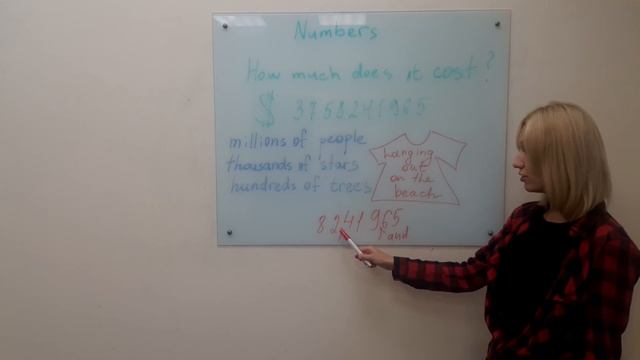 Numbers
How much does it cost?
$ 3758241965
millions of people
thousands of stars
hundreds of trees
hanging
out
on the
beach
8 241 965
and